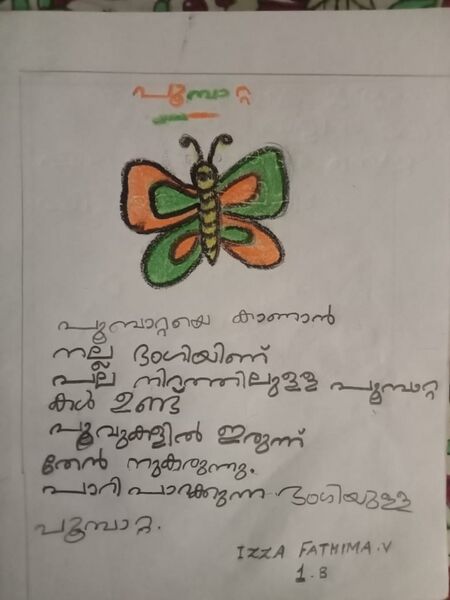 പൂമ്പാറ്റ
പൂമ്പാറ്റയെ കാണാൻ
നല്ല ഭംഗിയിണ്
പല നിറത്തിലുള്ള പൂമ്പാറ്റ
കൾ ഉണ്ട്
പൂവുകളിൽ ഇരുന്ന്
തേൻ നുകരുന്നു.
പാറി പറക്കുന്ന ഭംഗിയുള്ള
പൂമ്പാറ്റ.
IZZA FATHIMA.V
1.B